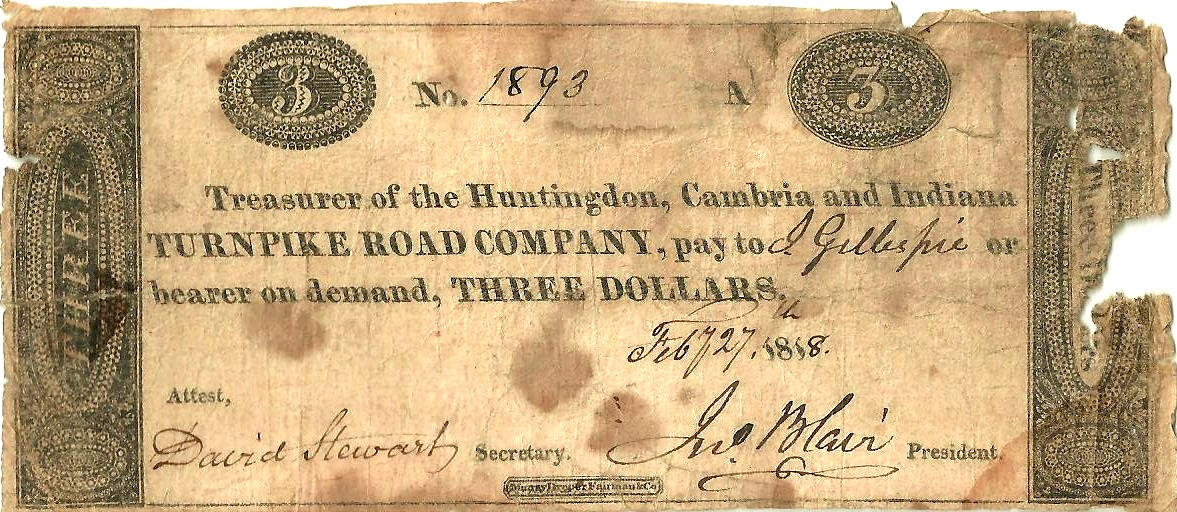 3 No. 1893 A 3
THREE
Treasurer of the Huntingdon, Cambria and Indiana
TURNPIKE ROAD COMPANY, pay to J Gillespie or
bearer on demand, THREE DOLLARS.
Feby 27th 1818.
Attest,
David Stewart Secretary. Jno. Blair President.
Murray Draper Fairman & Co